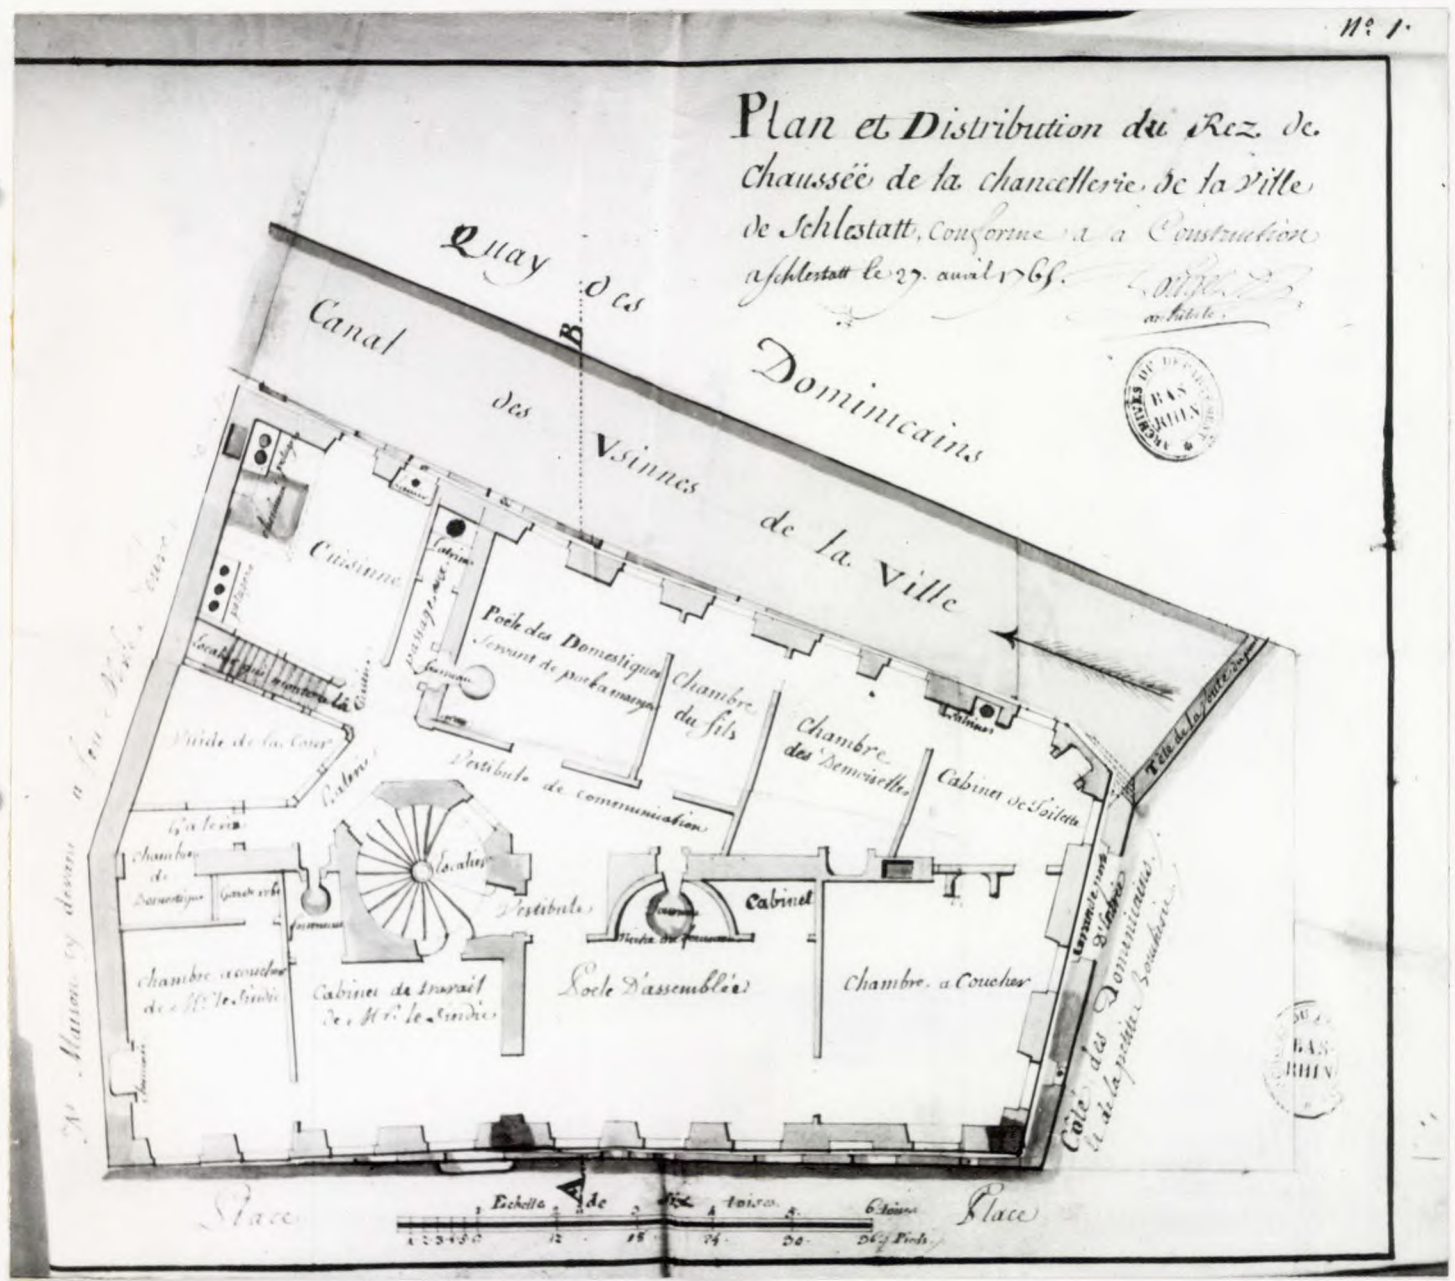 Nº 1.
Plan et Distribution du Rez. de.
Chaussëë de la chancellerie de la Ville
de Schlestatt, conforme a a Construction
a Schlestatt le 27. avril 1765.
architecte.
ARCHIVES DU DEPARTEMENT
BAS
RHIN
Quay des Dominicains
B
Canal des Vsinnes de la Ville
Tête de la voute
potager
Cuisinne
potagere
Latrine
passage
Escalier qui monte a la
Poële des Domestiques
servant de
fourneau
Chambre
du fils
Chambre
des Demoiselles
Latrines
Cabinet de Toilette
Vuide de la Cour
Galerie
Vestibule de communication
Galerie
Chambre
de
Domestique
Garde robe
fourneau
Escalier
Vestibule
fourneau
Niche du fourneau
Cabinet
Chambre a coucher
de Mr. le Sindic
Cabinet de travail
de Mr. le Sindic
Poele D'assemblée
Chambre a Coucher
Maison cy devant a
Côté des Dominicains,
et de la petite Boucherie
BAS
RHIN
Place
A
Echelle de six toises.
1 2 3 4 5 6 toises
1 2 3 4 5 6 12 18 24 30 36 Pieds.
Place